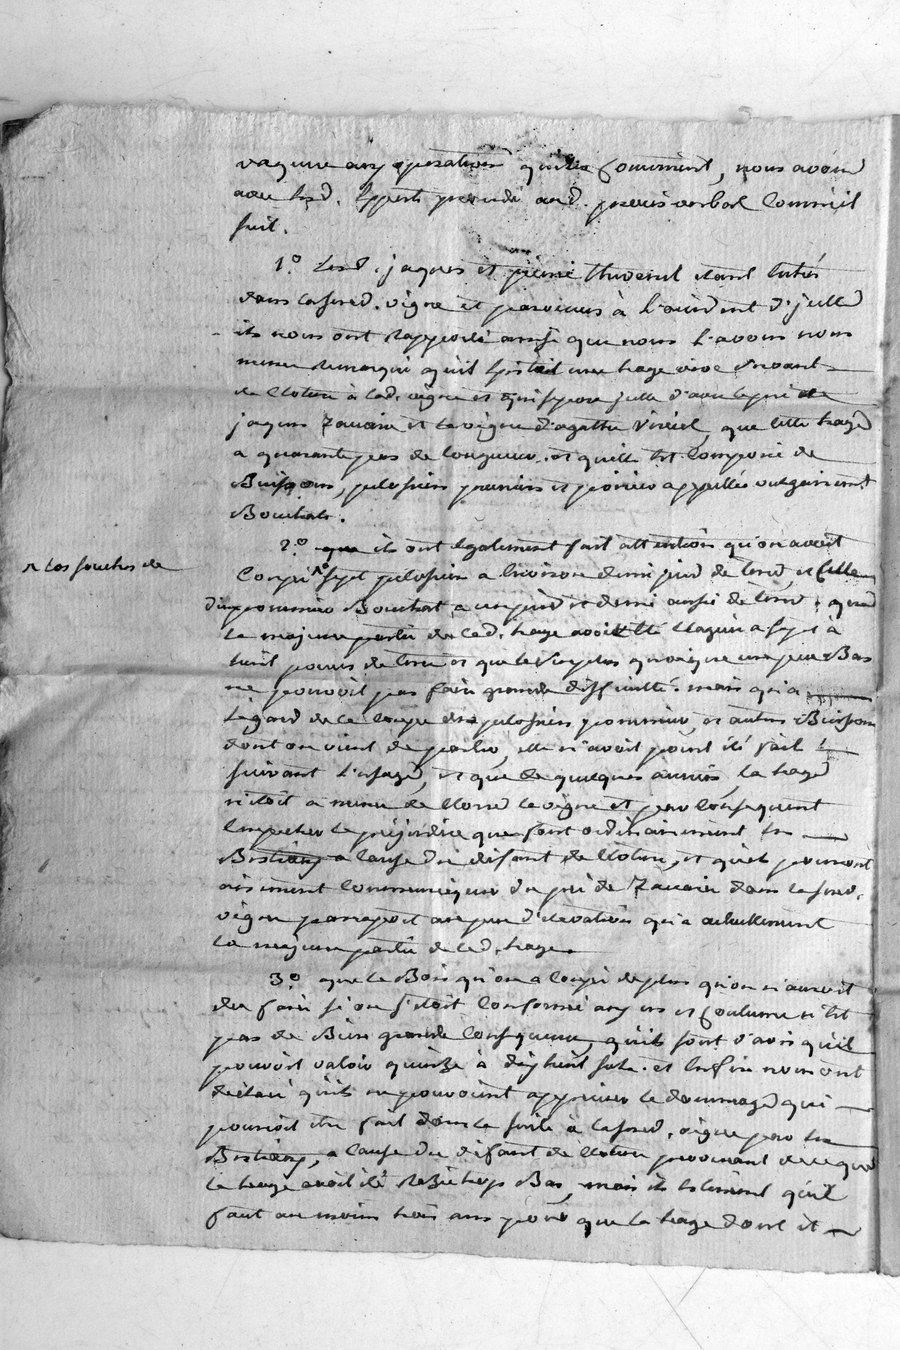 vaquer aux operations qui les concernent, nous avons
avec lesd. Experts procedé aud. procès verbal comme il
suit.
1.° Lesd. jaques et pierre thivent étant entrés
dans la susd. vigne et parvenus à l'occident d'jcelle
ils nous ont rapporté ainsi que nous l'avons nous
même remarqué qu'il Existoit une haye vive servant
de cloture à lad. vigne et qui separe jcelle d'avec le pré de
jaques et la vigne d'agathe que cette haye
a quarante pas de longueur, et qu'elle Est Composée de
Buissons, pelossiers pruniers et poiriers appellés vulgairement
Bouchats.
2.° que ils ont également fait attention qu'on avoit
Coupé ^ sept pelossiers a environ demi pied de terre, et celle
^ Les souches de
d'un pommier Bouchat a un pied et demi aussi de terre, que
la majeure partie de lad. haye avoit été à sept à
huit pouces de terre et que le surplus quoique un peu Bas
ne pouvoit pas faire grande difficulté. mais qu'a
l'egard de la Coupe des pelossiers pommier, et autres Buissons
dont on vient de parler, elle n'avoit point été fait
suivant l'usage, et que de quelques années, la haye
n'étoit a meme de clorre la vigne et par Consequent
Empecher le préjudice que font ordinairement les
Bestiaux a cause du défaut de cloture, et qu'ils pourront
aisement Communiquer du pré de dans la susd.
vigne par rapport au peu d'élévation qu'a actuellement
la majeure partie de lad. haye.
3.° que le Bois qu'on a coupé de plus qu'on n'auroit
du faire si on s'étoit Conformé aux us et coutume n'Est
pas de Bien grande Consequence, qu'ils sont d'avis qu'il
pouvoit valoir quinze à dixhuit sols. et Enfin nous ont
déclaré qu'ils ne pouvoient apprécier le dommage qui
pourroit être fait dans la suite à la susd. vigne par les
Bestiaux, a cause du défaut de cloture provenant de ce que
la haye avoit été trop Bas, mais ils Estiment qu'il
faut au moins trois ans pour que la haye dont il